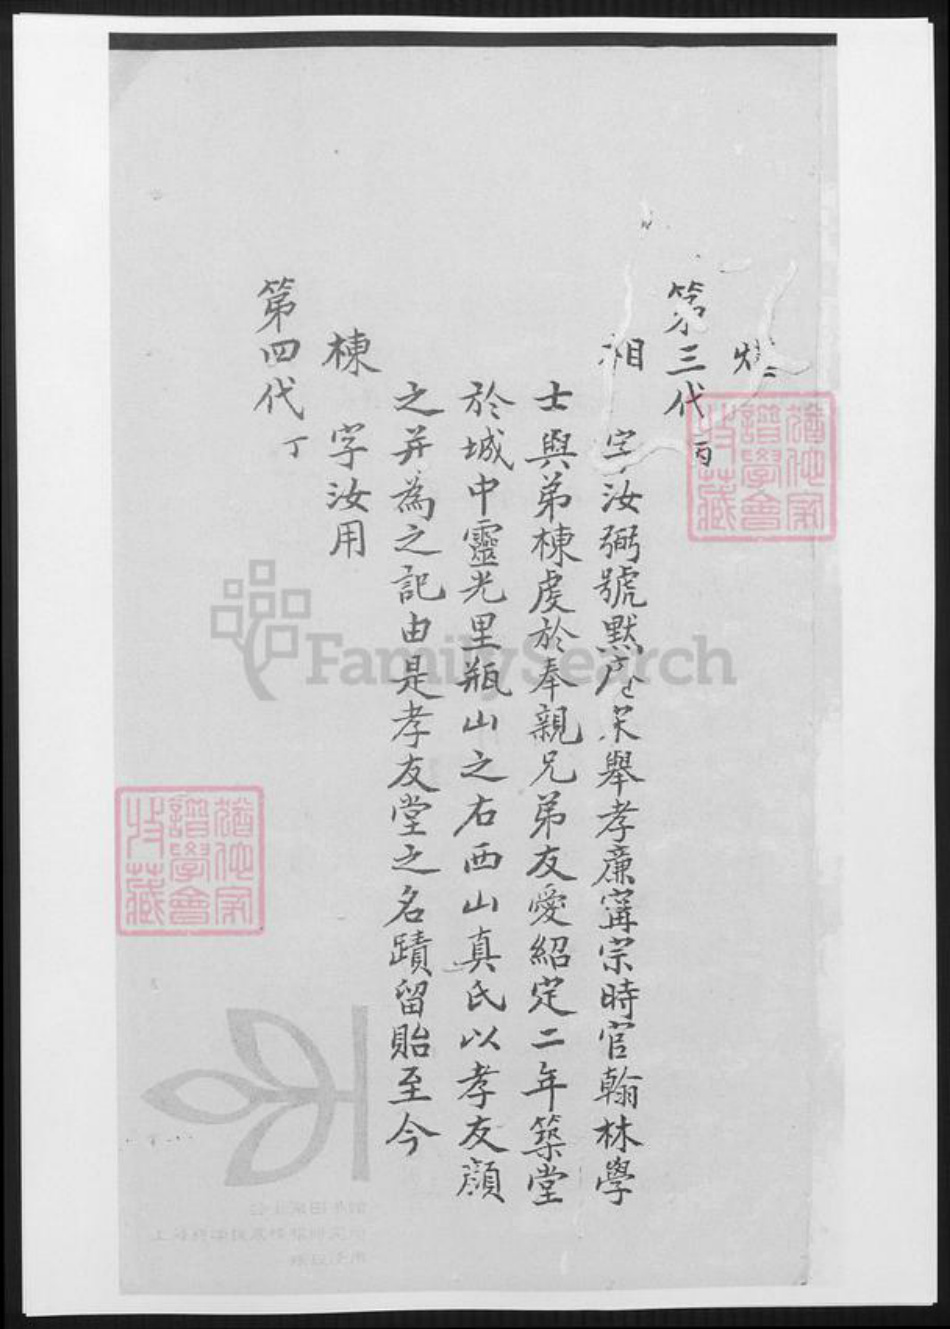 第三代 丙
湘 字汝弼號默庵 舉孝廉寗宗時官翰林學
士與弟棟虔於奉親兄弟友愛紹定二年築堂
於城中靈光里瓶山之右西山真氏以孝友顏
之并為之記由是孝友堂之名蹟留貽至今
棟 字汝用
第四代 丁
FamilySearch